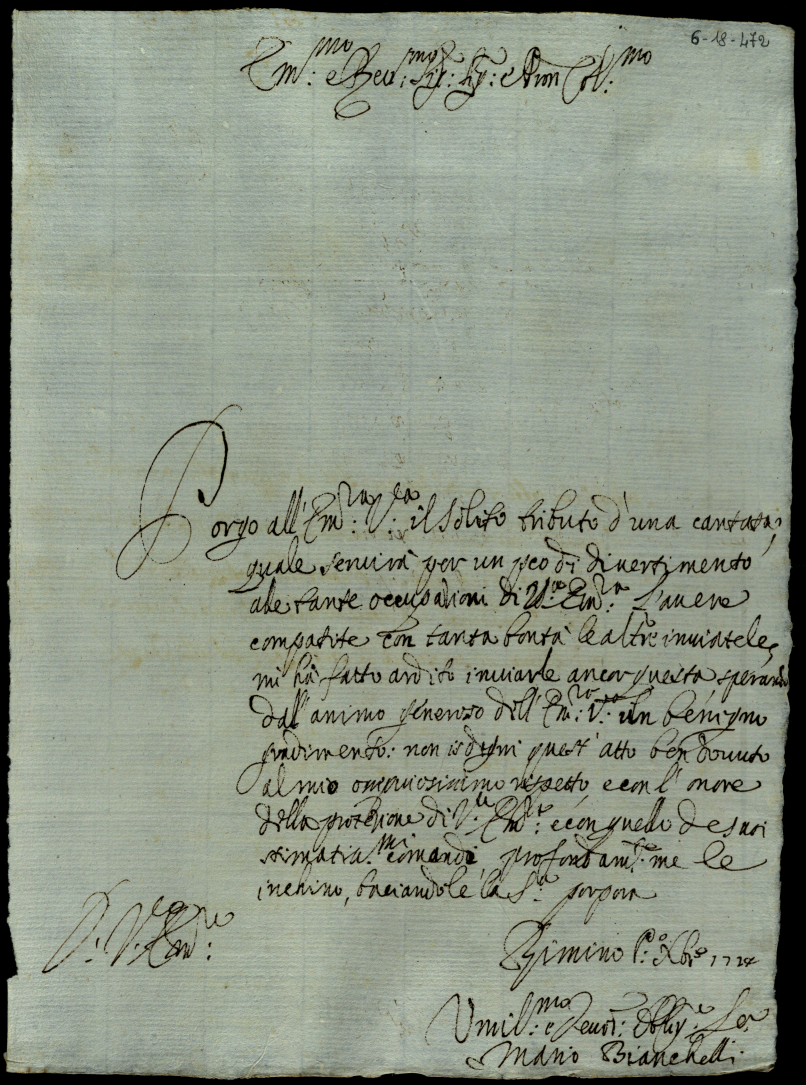 6-18-472
Em:mo e Rev:mo Sig: Sig: e Pron Col:mo
Porgo all'Em:za V:ra il solito tributo d'una cantata,
quale servirà per un poco di divertimento
alle tante occupationi di V:ra Em:za L'avere
compatite con tanta bontà le altre inviatele,
mi hà fatto ardito inviarle ancor questa sperando
dall'animo generoso dell'Em:za V:ra un benigno
gradimento: non isdegni quest'atto ben dovuto
al mio ossequiosissimo rispetto, e con l'onore
della protezione di V:ra Em:za e con quello de suoi
stimatis:mi comandi profondam:te me le
inchino, baciandole la S:ra porpora
D: V:ra Em:za
Rimino P:o Xbre 1724
Umil:mo e Devot: Obblig:o Se:re
Mario Bianchelli